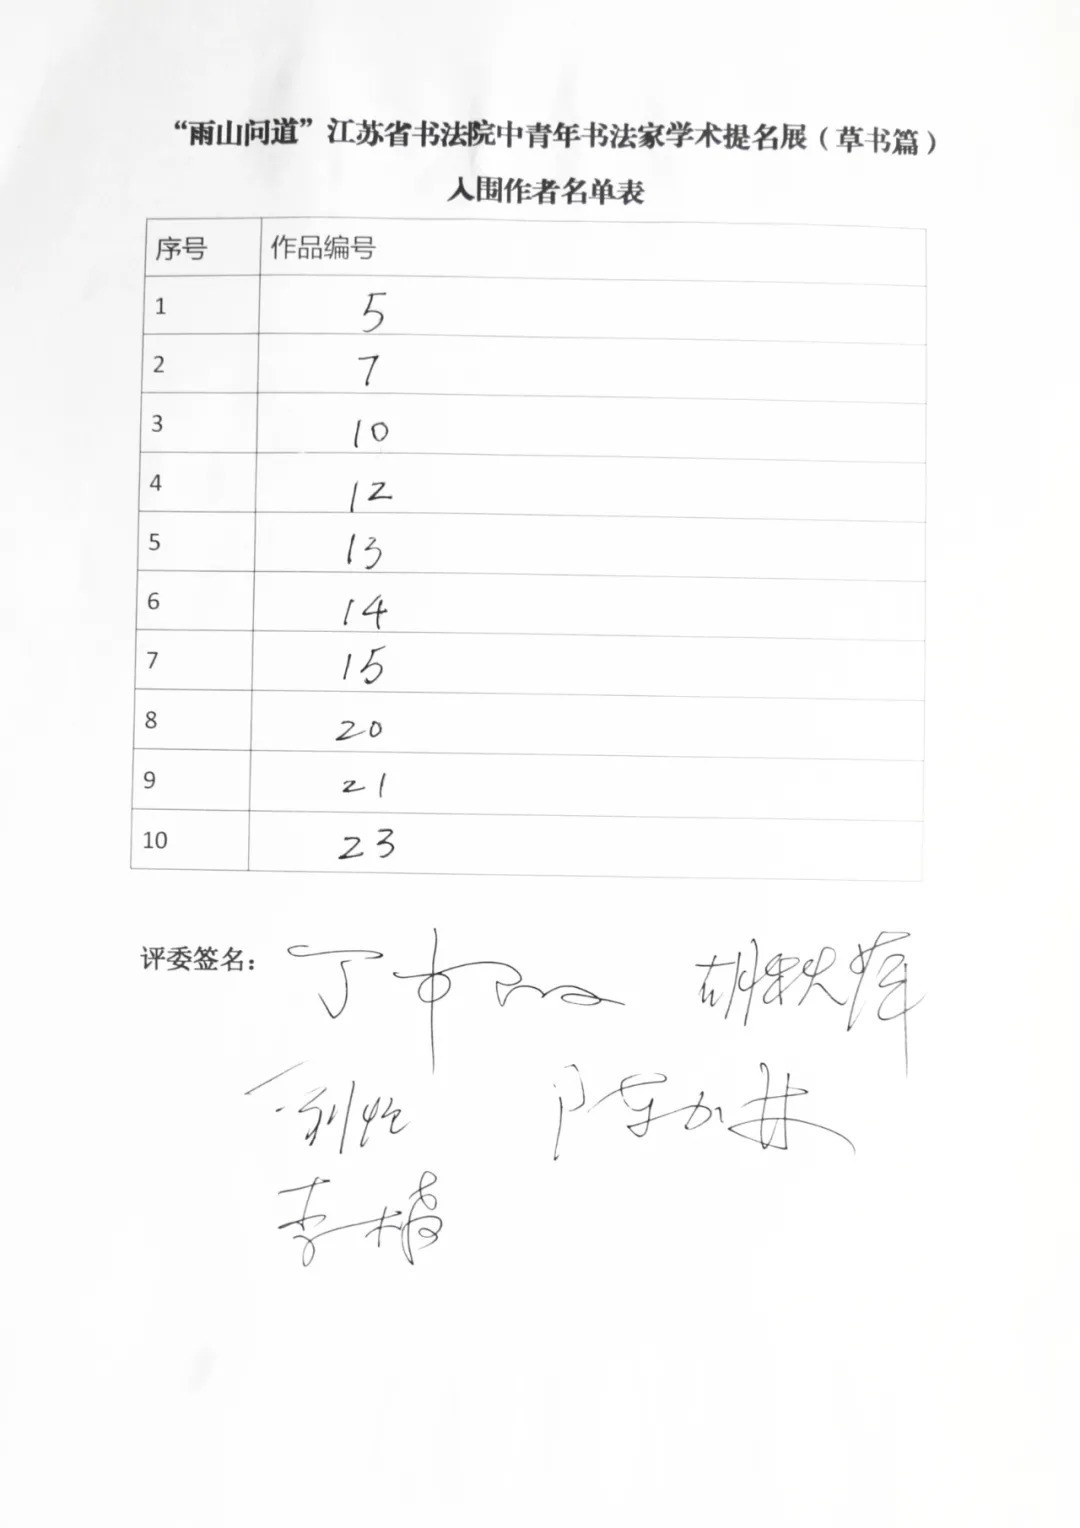 “雨山问道”江苏省书法院中青年书法家学术提名展（草书篇）
入围作者名单表
序号 作品编号
1 5
2 7
3 10
4 12
5 13
6 14
7 15
8 20
9 21
10 23
评委签名： 胡秋萍
陈加林
李